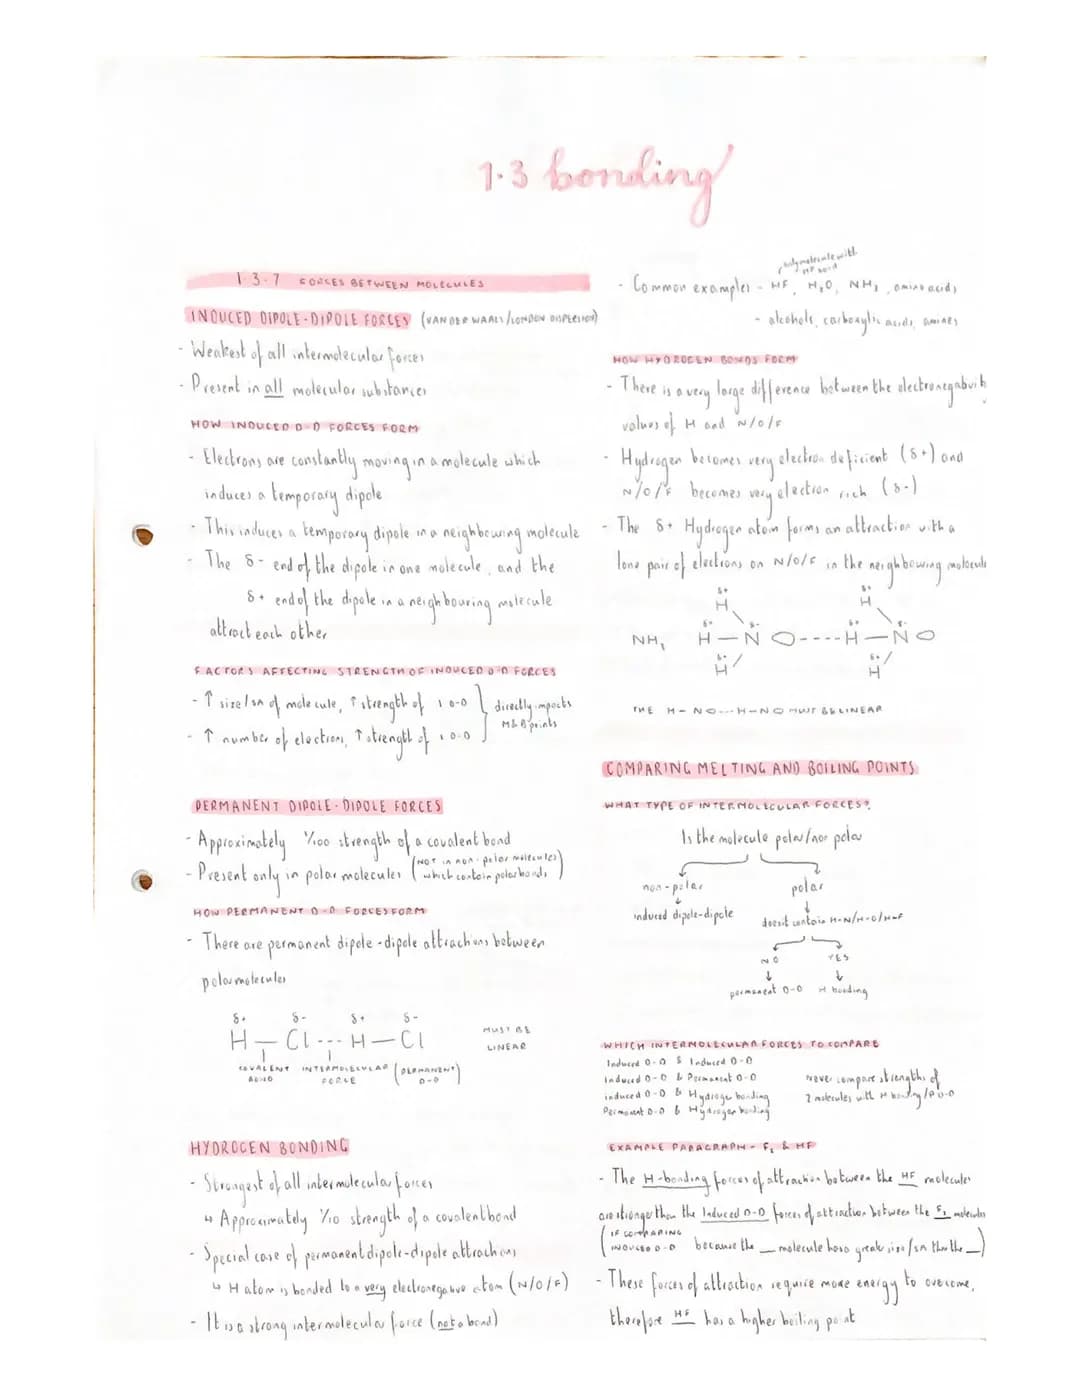 1.3 bonding
1.3.7 FORCES BETWEEN MOLECULES
INDUCED DIPOLE-DIPOLE FORCES (VAN DER WAALS/LONDON DISPERSION)
- Weakest of all intermolecular forces
- Present in all molecular substances
HOW INDUCED D-D FORCES FORM
- Electrons are constantly moving in a molecule which
induces a temporary dipole
- This induces a temporary dipole in a neighbouring molecule
- The δ- end of the dipole in one molecule, and the
δ+ end of the dipole in a neighbouring molecule
attract each other
FACTORS AFFECTING STRENGTH OF INDUCED D-D FORCES
- ↑ size/SA of molecule, ↑ strength of I D-D
- ↑ number of electrons, ↑ strength of I D-D
directly impacts
M&B points
PERMANENT DIPOLE-DIPOLE FORCES
- Approximately 1/100 strength of a covalent bond
- Present only in polar molecules (NOT in non-polar molecules
which contain polar bonds)
HOW PERMANENT D-D FORCES FORM
- There are permanent dipole-dipole attractions between
polar molecules
δ+ δ- δ+ δ-
H — Cl --- H — Cl
MUST BE
LINEAR
COVALENT BOND
INTERMOLECULAR FORCE (PERMANENT D-D)
HYDROGEN BONDING
- Strongest of all intermolecular forces
↳ Approximately 1/10 strength of a covalent bond
- Special case of permanent dipole-dipole attractions
↳ H atom is bonded to a very electronegative atom (N/O/F)
- It is a strong intermolecular force (not a bond)
only molecule with
HF bond
- Common examples - HF, H2O, NH3, amino acids
- alcohols, carboxylic acids, amines
HOW HYDROGEN BONDS FORM
- There is a very large difference between the electronegativity
values of H and N/O/F
- Hydrogen becomes very electron deficient (δ+) and
N/O/F becomes very electron rich (δ-)
- The δ+ Hydrogen atom forms an attraction with a
lone pair of electrons on N/O/F in the neighbouring molecule
δ+ δ+
H H
δ+ δ- δ+ δ-
NH3 H — N ---- H — N
δ+ δ+
H H
THE H-N---H-N MUST BE LINEAR
COMPARING MELTING AND BOILING POINTS
WHAT TYPE OF INTERMOLECULAR FORCES?
Is the molecule polar/non polar
non-polar
polar
induced dipole-dipole
doesit contain H-N/H-O/H-F
NO
YES
permanent D-D
H bonding
WHICH INTERMOLECULAR FORCES TO COMPARE
Induced D-D & Induced D-D
Induced D-D & Permanent D-D
induced D-D & Hydroge bonding
Permanent D-D & Hydrogen bonding
never compare strengths of
2 molecules with H bonding/P D-D
EXAMPLE PARAGRAPH - F2 & HF
- The H-bonding forces of attraction between the HF molecules
are stronger than the Induced D-D forces of attraction between the F2 molecules
(IF COMPARING
INDUCED D-D because the _ molecule has a greater size/SA than the _)
- These forces of attraction require more energy to overcome,
therefore HF has a higher boiling point